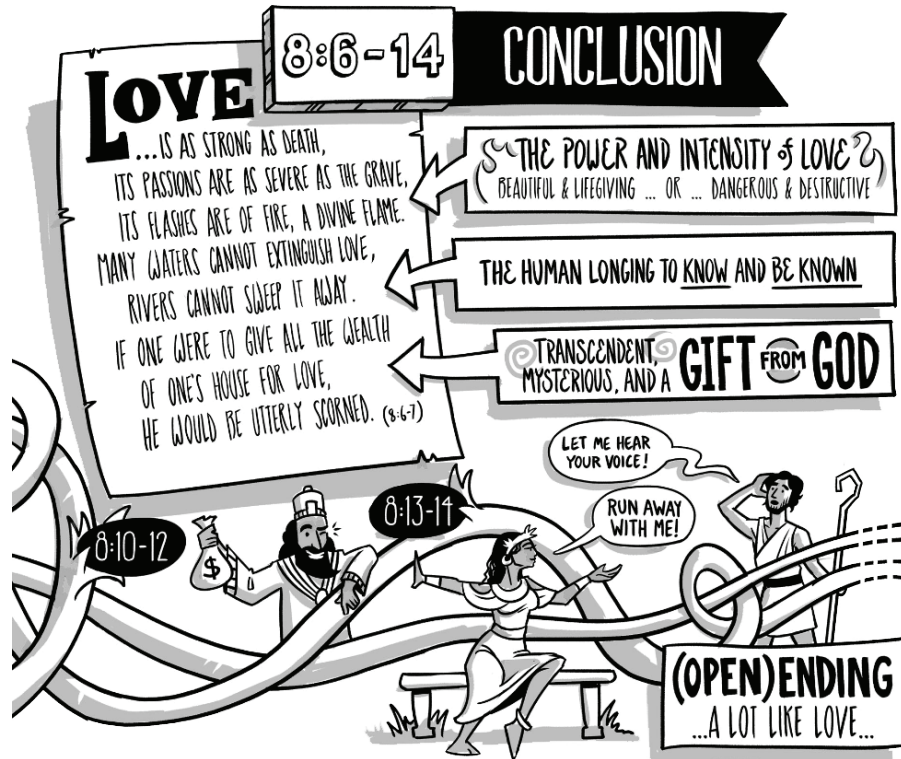 8:6-14
CONCLUSION
LOVE
...IS AS STRONG AS DEATH,
ITS PASSIONS ARE AS SEVERE AS THE GRAVE,
ITS FLASHES ARE OF FIRE, A DIVINE FLAME.
MANY WATERS CANNOT EXTINGUISH LOVE,
RIVERS CANNOT SWEEP IT AWAY.
IF ONE WERE TO GIVE ALL THE WEALTH
OF ONE'S HOUSE FOR LOVE,
HE WOULD BE UTTERLY SCORNED. (8:6-7)
THE POWER AND INTENSITY of LOVE
BEAUTIFUL & LIFEGIVING ... OR ... DANGEROUS & DESTRUCTIVE
THE HUMAN LONGING TO KNOW AND BE KNOWN
TRANSCENDENT,
MYSTERIOUS, AND A GIFT FROM GOD
LET ME HEAR
YOUR VOICE!
RUN AWAY
WITH ME!
8:10-12
$
8:13-14
(OPEN)ENDING
...A LOT LIKE LOVE...